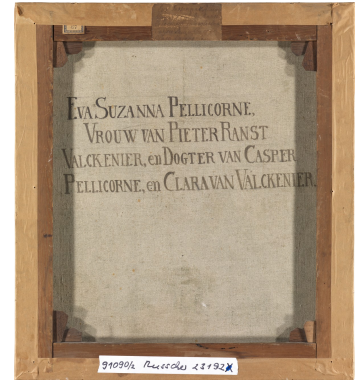 EVA SUZANNA PELLICORNE,
VROUW VAN PIETER RANST
VALCKENIER, en DOGTER VAN CASPER
PELLICORNE, en CLARA VAN VALCKENIER.
91090/2 Russcher 28192